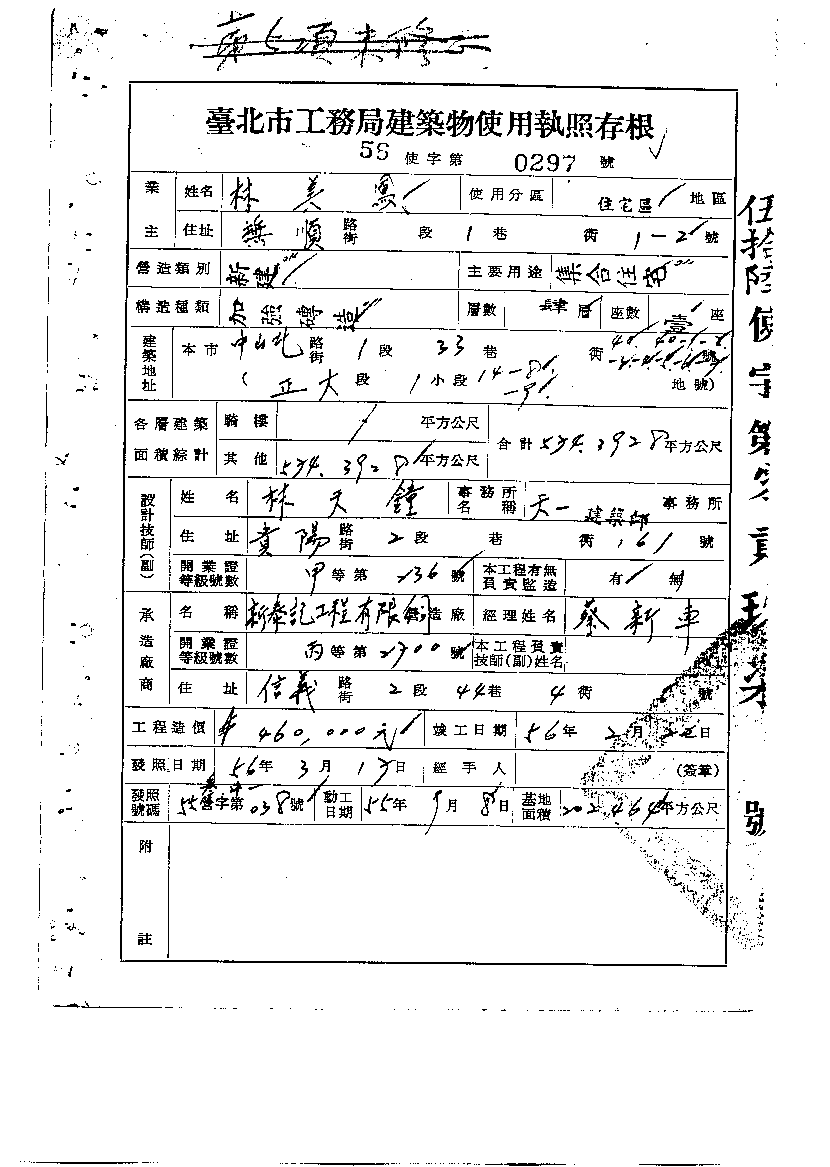 臺北市工務局建築物使用執照存根
56 使字第 0297 號
業主 姓名 林美鳳 使用分區 住宅區 地區
住址 撫順 路街 段 1 巷 衖 1-2 號
營造類別 新建 主要用途 集合住宅
構造種類 加強磚造 層數 肆 層 座數 壹 座
建築地址 本市 中山北 路街 1 段 33 巷 衖 號
( 正大 段 1 小段 14-8 -9 地號)
各層建築面積綜計 騎樓 / 平方公尺 合計 534.3928 平方公尺
其他 534.3928 平方公尺
設計技師(副) 姓名 林天鐘 事務所名稱 天一建築師 事務所
住址 貴陽 路街 2 段 巷 衖 161 號
開業證等級號數 甲 等第 236 號 本工程有無負責監造 有 無
承造廠商 名稱 新泰記工程有限公司 營造廠 經理姓名 蔡新車
開業證等級號數 丙 等第 2700 號 本工程負責技師(副)姓名
住址 信義 路街 2 段 44 巷 4 衖 號
工程造價 460,000元 竣工日期 56 年 2 月 22 日
發照日期 56 年 3 月 17 日 經手人 (簽章)
發照號碼 55 營字第 038 號 動工日期 55 年 9 月 8 日 基地面積 202.464 平方公尺
附註
伍拾陸使字第 號